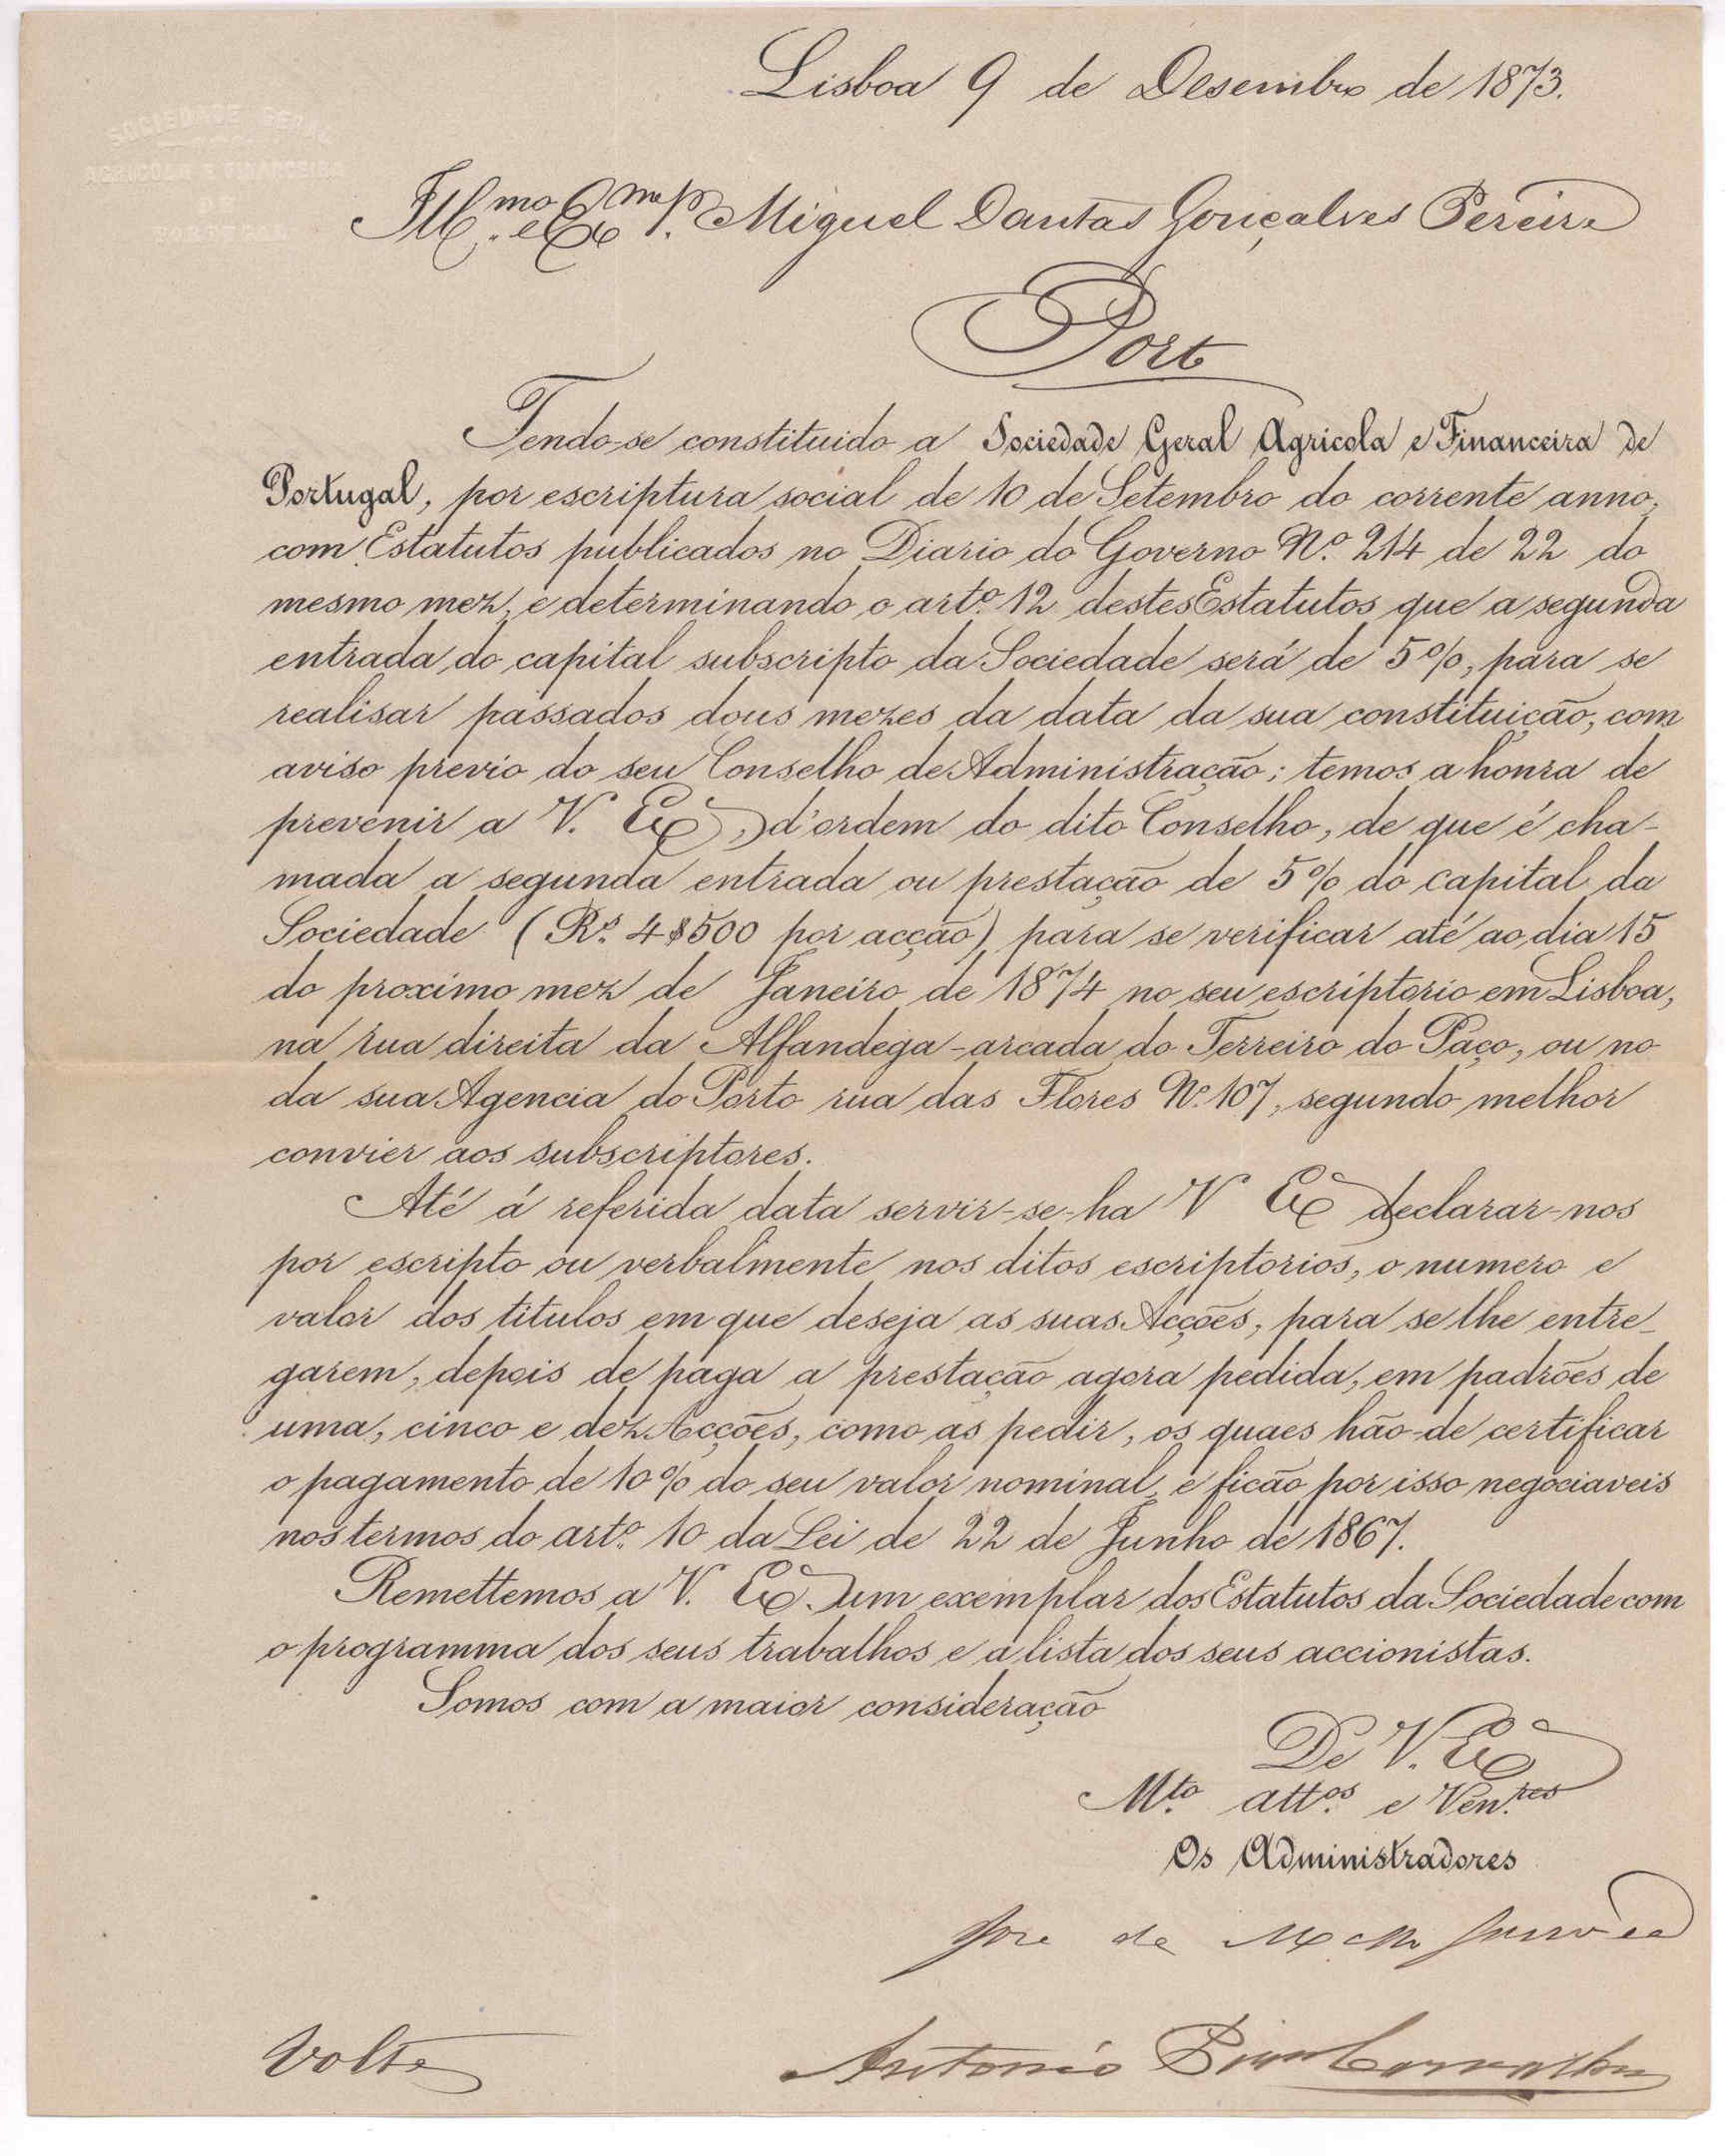 Lisboa 9 de Desembro de 1873.
SOCIEDADE GERAL
AGRICOLA E FINANCEIRA
DE
PORTUGAL
Ill.mo e Ex.mo Sr. Miguel Dantas Gonçalves Pereira
Port
Tendo-se constituido a Sociedade Geral Agricola e Financeira de
Portugal, por escriptura social de 10 de Setembro do corrente anno,
com Estatutos publicados no Diario do Governo N.º 214 de 22 do
mesmo mez, e determinando o art.º 12 destes Estatutos que a segunda
entrada do capital subscripto da Sociedade será de 5%, para se
realisar passados dous mezes da data da sua constituição, com
aviso previo do seu Conselho de Administração; temos a honra de
prevenir a V. Exª, d'ordem do dito Conselho, de que é cha-
mada a segunda entrada ou prestação de 5% do capital da
Sociedade (R.s 4$500 por acção) para se verificar até ao dia 15
do proximo mez de Janeiro de 1874 no seu escriptorio em Lisboa,
na rua direita da Alfandega-arcada do Terreiro do Paço, ou no
da sua Agencia do Porto rua das Flores N.º 107, segundo melhor
convier aos subscriptores.
Até á referida data servir-se-ha V Exª declarar-nos
por escripto ou verbalmente nos ditos escriptorios, o numero e
valor dos titulos em que deseja as suas Acções, para se lhe entre-
garem, depois de paga a prestação agora pedida, em padrões de
uma, cinco e dez Acções, como as pedir, os quaes hão-de certificar
o pagamento de 10% do seu valor nominal, e ficão por isso negociaveis
nos termos do art.º 10 da Lei de 22 de Junho de 1867.
Remettemos a V. Exª um exemplar dos Estatutos da Sociedade com
o programma dos seus trabalhos e a lista dos seus accionistas.
Somos com a maior consideração
De V. Exª
M.to att.os e Ven.res
Os Administradores
José de Mello
Antonio Carvalho
Volte